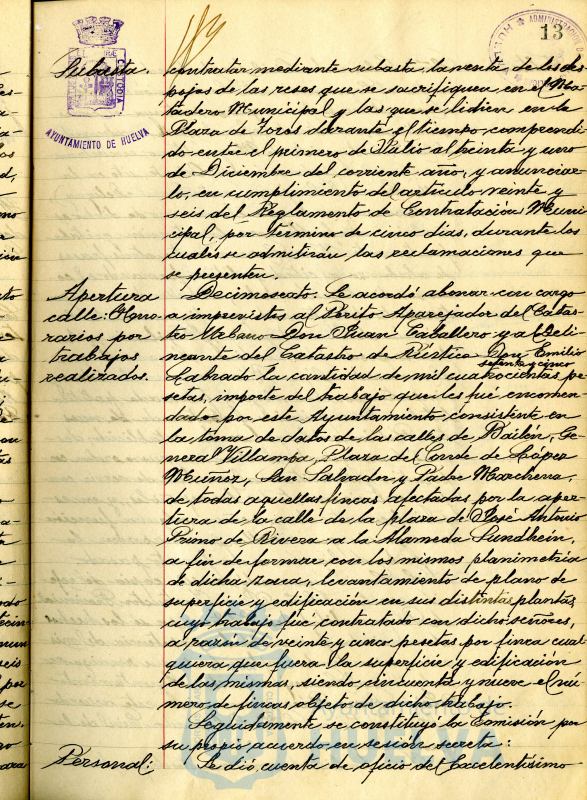 13
AYUNTAMIENTO DE HUELVA
CUSTODIA
Subasta.
contratar mediante subasta la venta, de los des
pojos de las reses que se sacrifiquen en el Ma
tadero Municipal y las que se lidien en la
Plaza de Toros durante el tiempo comprendi
do entre el primero de Julio al treinta y uno
de Diciembre del corriente año, y anunciar
lo, en cumplimiento del artículo veinte y
seis del Reglamento de Contratación Muni
cipal, por término de cinco días, durante los
cuales se admitirán las reclamaciones que
se presenten.
Apertura
calle: Hono
rarios por
trabajos
realizados.
Decimosexto. Se acordó abonar con cargo
a imprevistos al Périto Aparejador del Catas
tro Urbano Don Juan Caballero y al Deli
neante del Catastro de Rústica Don Emilio
setenta y cinco
Labrado la cantidad de mil cuatrocientas pe
setas, importe del trabajo que les fué encomen
dado por este Ayuntamiento, consistente en
la toma de datos de las calles de Bailén, Ge
neral Villampa, Plaza del Conde de López
Muñoz, San Salvador y Padre Marchena,
de todas aquellas fincas afectadas por la aper
tura de la calle de la plaza de José Antonio
Primo de Rivera a la Alameda Sundheim,
a fin de formar con los mismos planimetría
de dicha zona, levantamiento de plano de
superficie y edificación en sus distintas plantas,
cuyo trabajo fue contratado con dichos señores,
a razón de veinte y cinco pesetas por finca cual
quiera que fuera la superficie y edificación
de las mismas, siendo cincuenta y nueve el nú
mero de fincas objeto de dicho trabajo.
Seguidamente se constituyó la Comisión por
su propio acuerdo en sesión secreta:
Personal:
Se dió cuenta de oficio del Excelentísimo